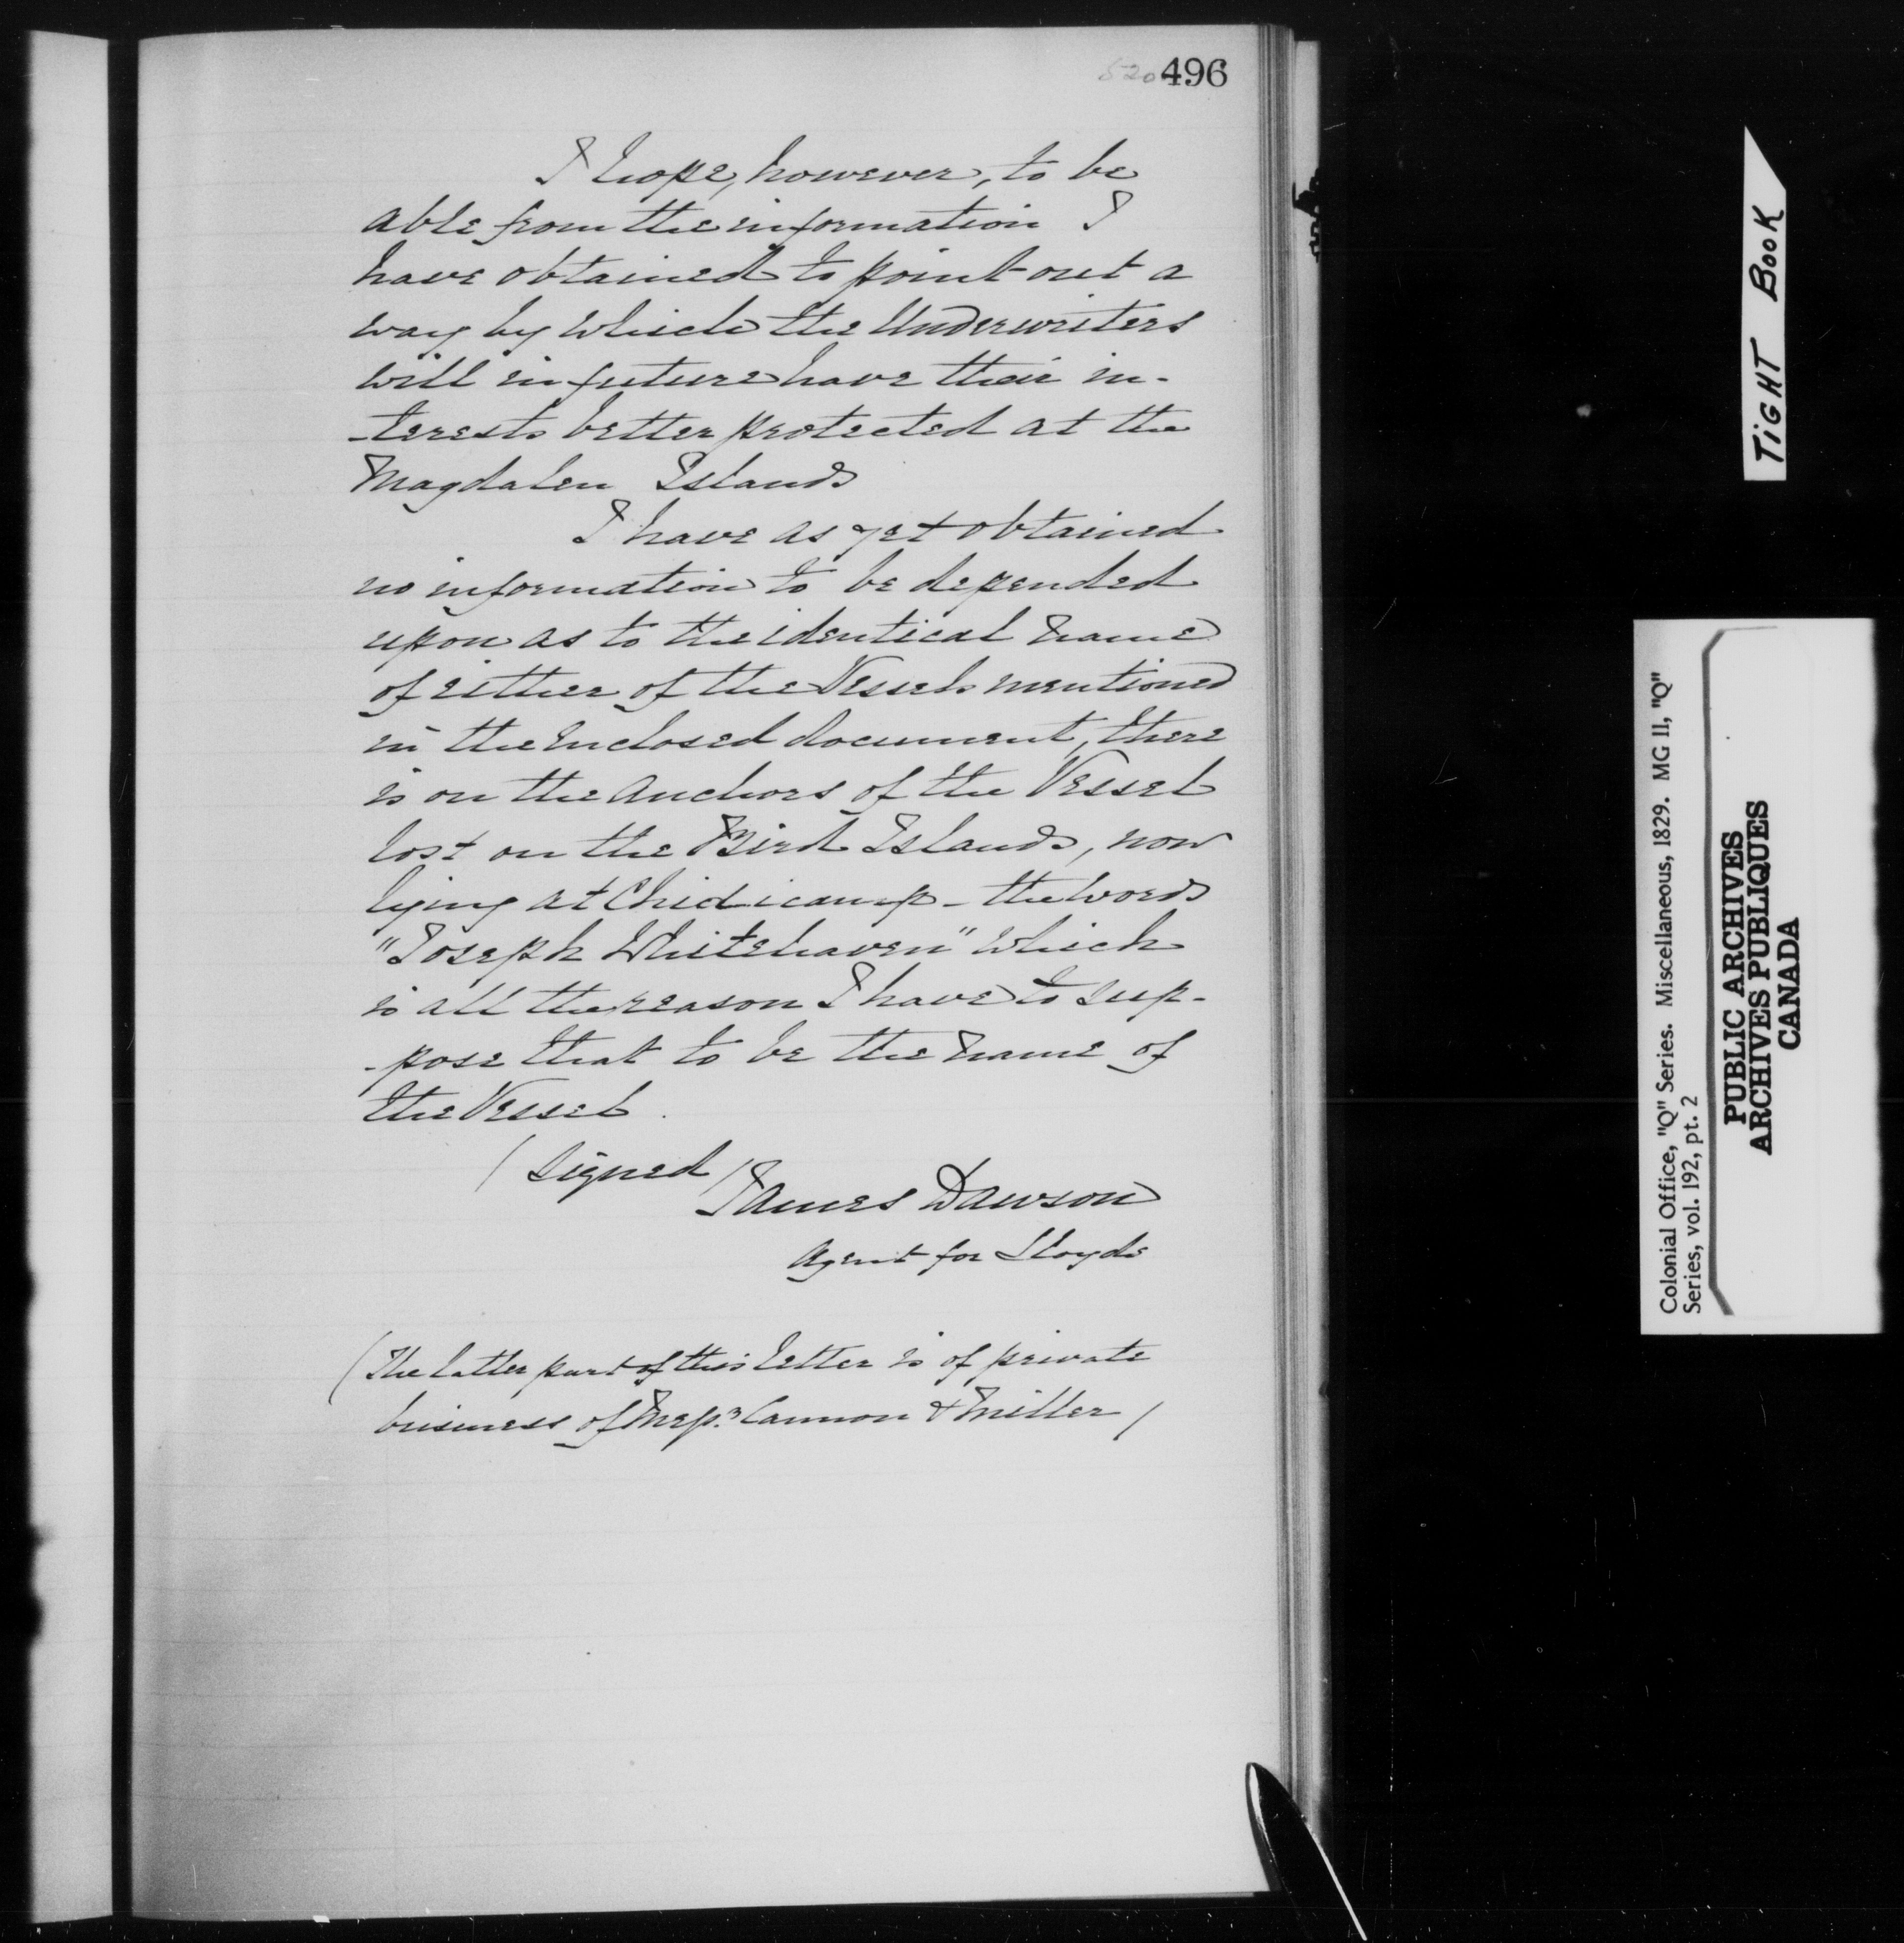 520 496
I hope, however, to be
able from the information I
have obtained to point out a
way by which the Underwriters
will in future have their in-
-terests better protected at the
Magdalen Islands
I have as yet obtained
no information to be depended
upon as to the identical name
of either of the Vessels mentioned
in the enclosed document, there
is on the Anchors of the Vessel
lost on the Bird Islands, now
lying at Chidicamp - the words
"Joseph Whitehaven" which
is all the reason I have to sup-
-pose that to be the name of
the Vessel.
(Signed)
James Dawson
Agent for Lloyds
(The latter part of this letter is of private
business of Messrs Cannon & Miller)
TIGHT BOOK
Colonial Office, "Q" Series. Miscellaneous, 1829. MG 11, "Q"
Series, vol. 192, pt. 2
PUBLIC ARCHIVES
ARCHIVES PUBLIQUES
CANADA